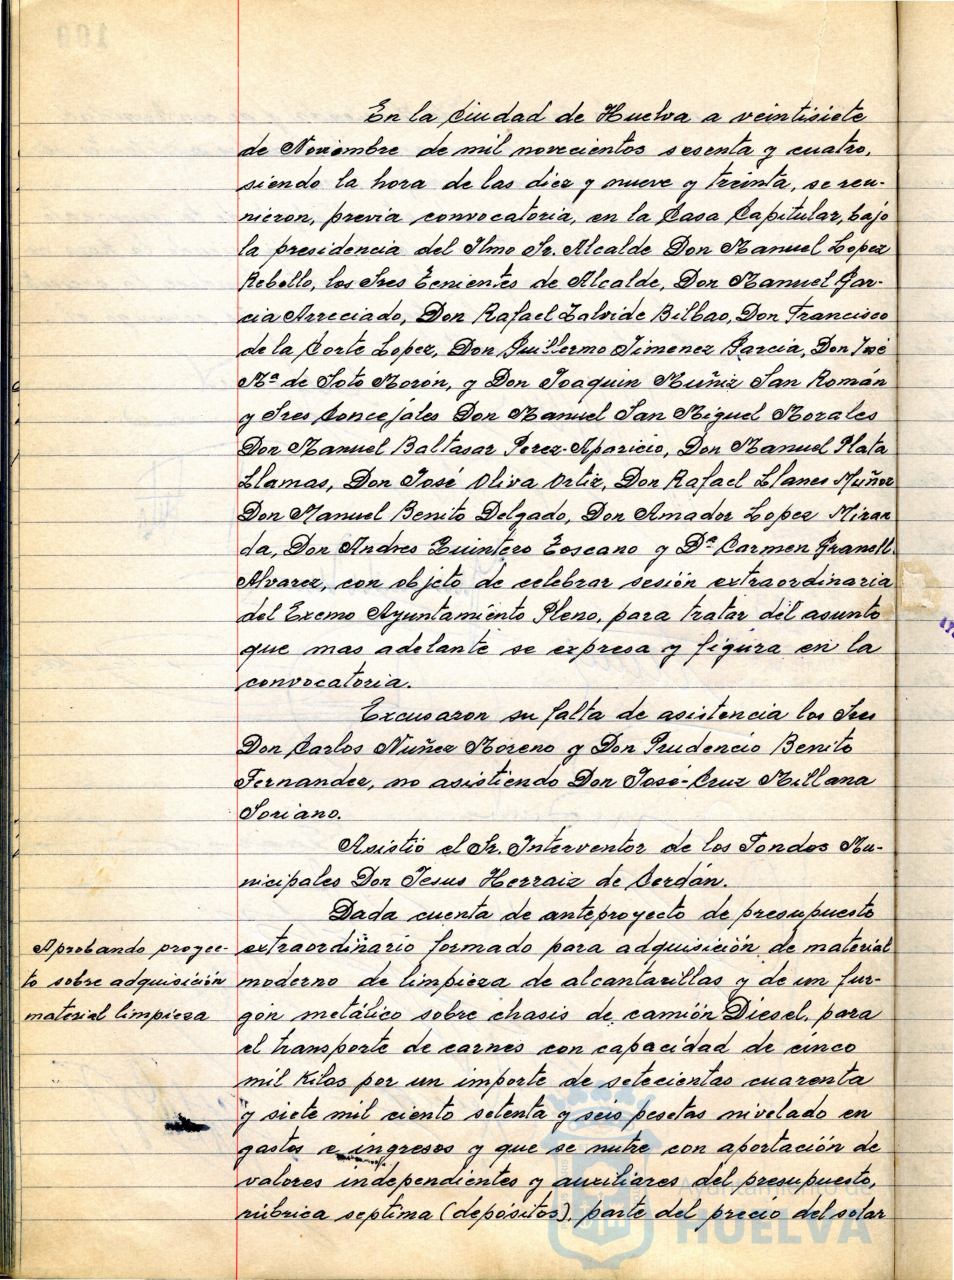 En la Ciudad de Huelva a veintisiete
de Noviembre de mil novecientos sesenta y cuatro,
siendo la hora de las diez y nueve y treinta, se reu-
nieron, previa convocatoria, en la Casa Capitular, bajo
la presidencia del Ilmo Sr. Alcalde Don Manuel Lopez
Rebollo, los Sres Tenientes de Alcalde, Don Manuel Gar-
cia Arreciado, Don Rafael Zalvide Bilbao, Don Francisco
de la Corte Lopez, Don Guillermo Jimenez Garcia, Don José
Mª de Soto Morón, y Don Joaquin Muñiz San Román
y Sres Concejales Don Manuel San Miguel Morales
Don Manuel Baltasar Perez-Aparicio, Don Manuel Plata
Llamas, Don José Oliva Ortiz, Don Rafael Llanes Muñoz
Don Manuel Benito Delgado, Don Amador Lopez Miran
da, Don Andres Quintero Toscano y Dª Carmen Granell
Alvarez, con objeto de celebrar sesión extraordinaria
del Excmo Ayuntamiento Pleno, para tratar del asunto
que mas adelante se expresa y figura en la
convocatoria.
Excusaron su falta de asistencia los Sres
Don Carlos Nuñez Moreno y Don Prudencio Benito
Fernandez, no asistiendo Don José-Cruz Millana
Soriano.
Asistió el Sr. Interventor de los Fondos Mu-
nicipales Don Jesus Herraiz de Cerdán.
Dada cuenta de anteproyecto de presupuesto
Aprobando proyec-
to sobre adquisición
material limpieza
extraordinario formado para adquisición de material
moderno de limpieza de alcantarillas y de un fur-
gón metálico sobre chasis de camión Diésel, para
el transporte de carnes con capacidad de cinco
mil kilos por un importe de setecientas cuarenta
y siete mil ciento setenta y seis pesetas nivelado en
gastos e ingresos y que se nutre con aportación de
valores independientes y auxiliares del presupuesto,
rúbrica septima (depósitos), parte del precio del solar
Ayuntamiento de
HUELVA